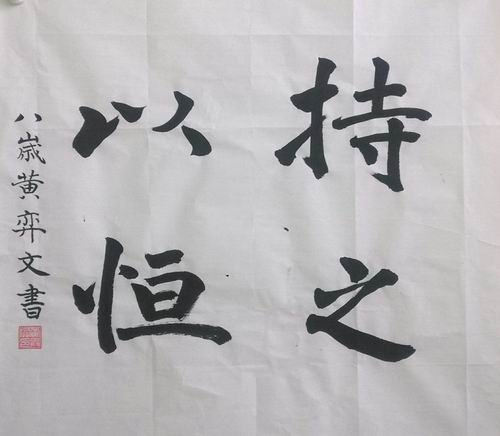 持之
以恒
八歳黄弈文書